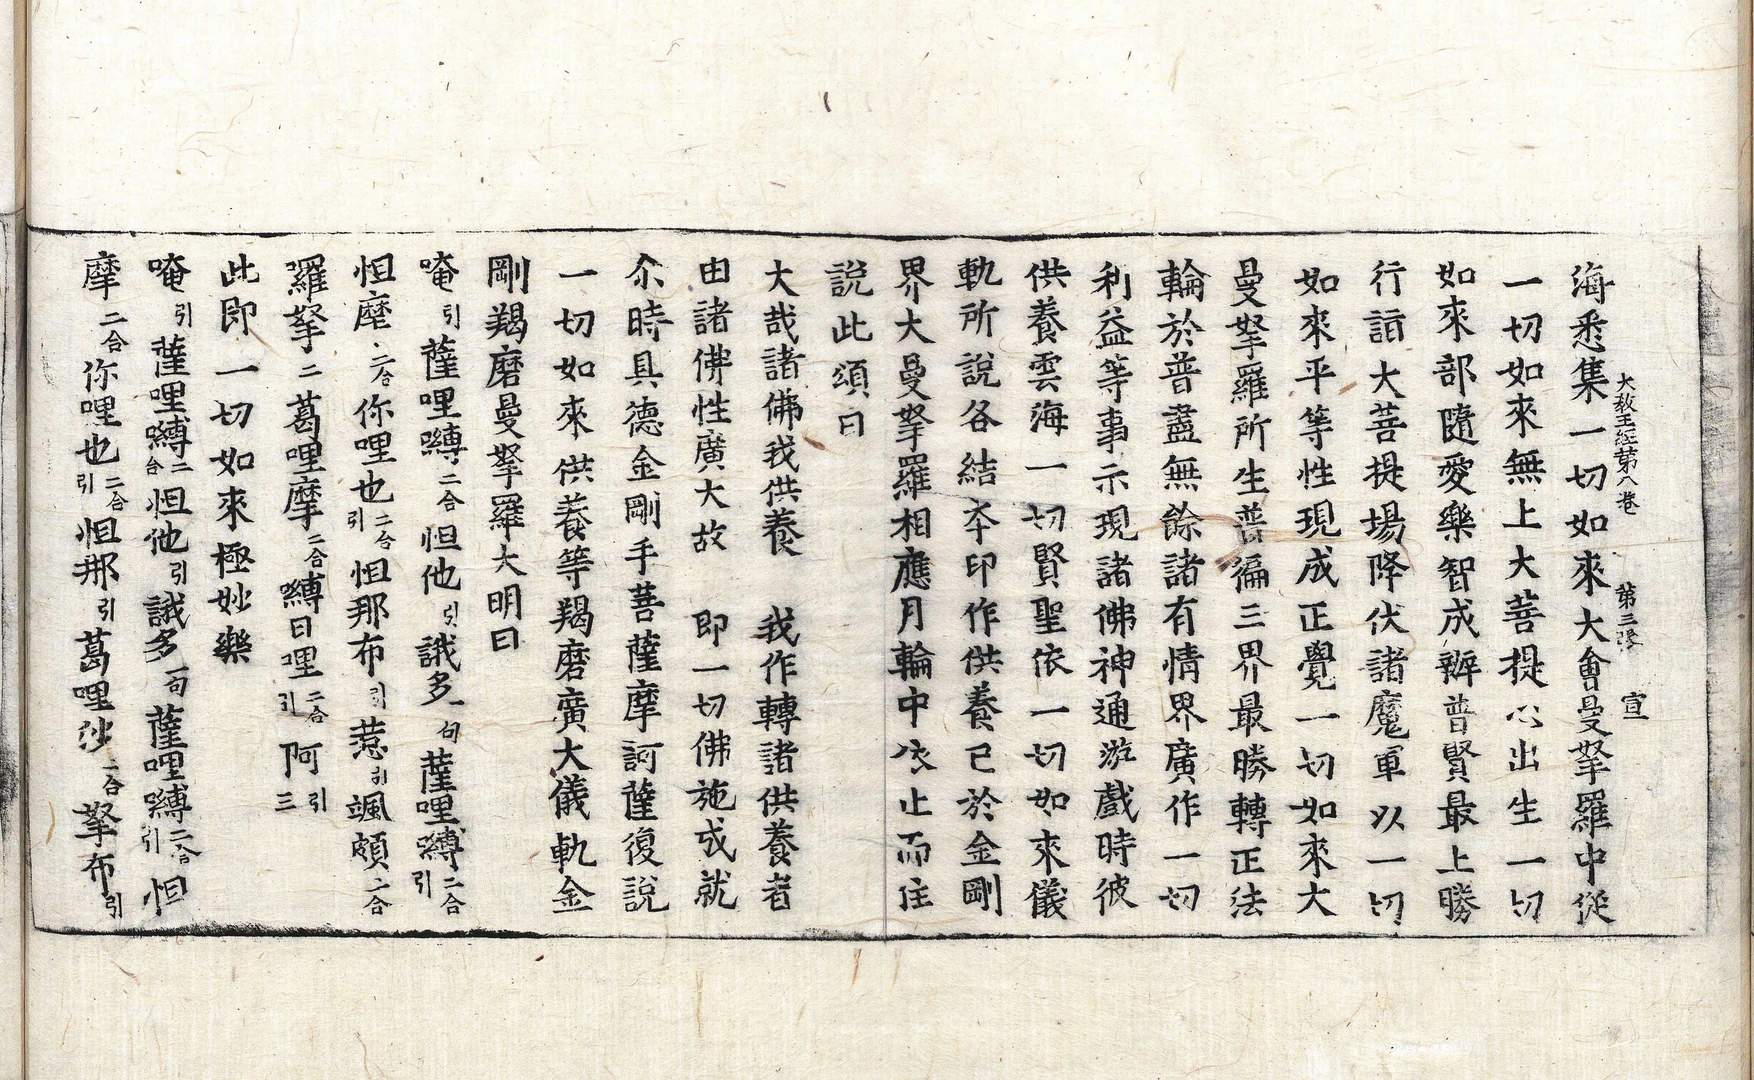 大敎王經第八卷　第三張　宣
海悉集一切如來大會曼拏羅中從
一切如來無上大菩提心出生一切
如來部隨愛樂智成辦普賢最上勝
行詣大菩提場降伏諸魔軍以一切
如來平等性現成正覺一切如來大
曼拏羅所生普徧三界最勝轉正法
輪於普盡無餘諸有情界廣作一切
利益等事示現諸佛神通游戲時彼
供養雲海一切賢聖依一切如來儀
軌所說各結本印作供養已於金剛
界大曼拏羅相應月輪中依止而住
說此頌曰
大哉諸佛我供養　我作轉諸供養者
由諸佛性廣大故　即一切佛施成就
尒時具德金剛手菩薩摩訶薩復說
一切如來供養等羯磨廣大儀軌金
剛羯磨曼拏羅大明曰
唵引薩哩嚩二合怛他引誐多一句薩哩嚩二合引
怛摩二合你哩也二合引怛那布引惹引颯頗二合
羅拏二葛哩摩二合嚩日哩二合引阿引三
此即一切如來極妙樂
唵引薩哩嚩二合怛他引誐多一句薩哩嚩二合引怛
摩二合你哩也二合引怛那引葛哩沙二合拏布引